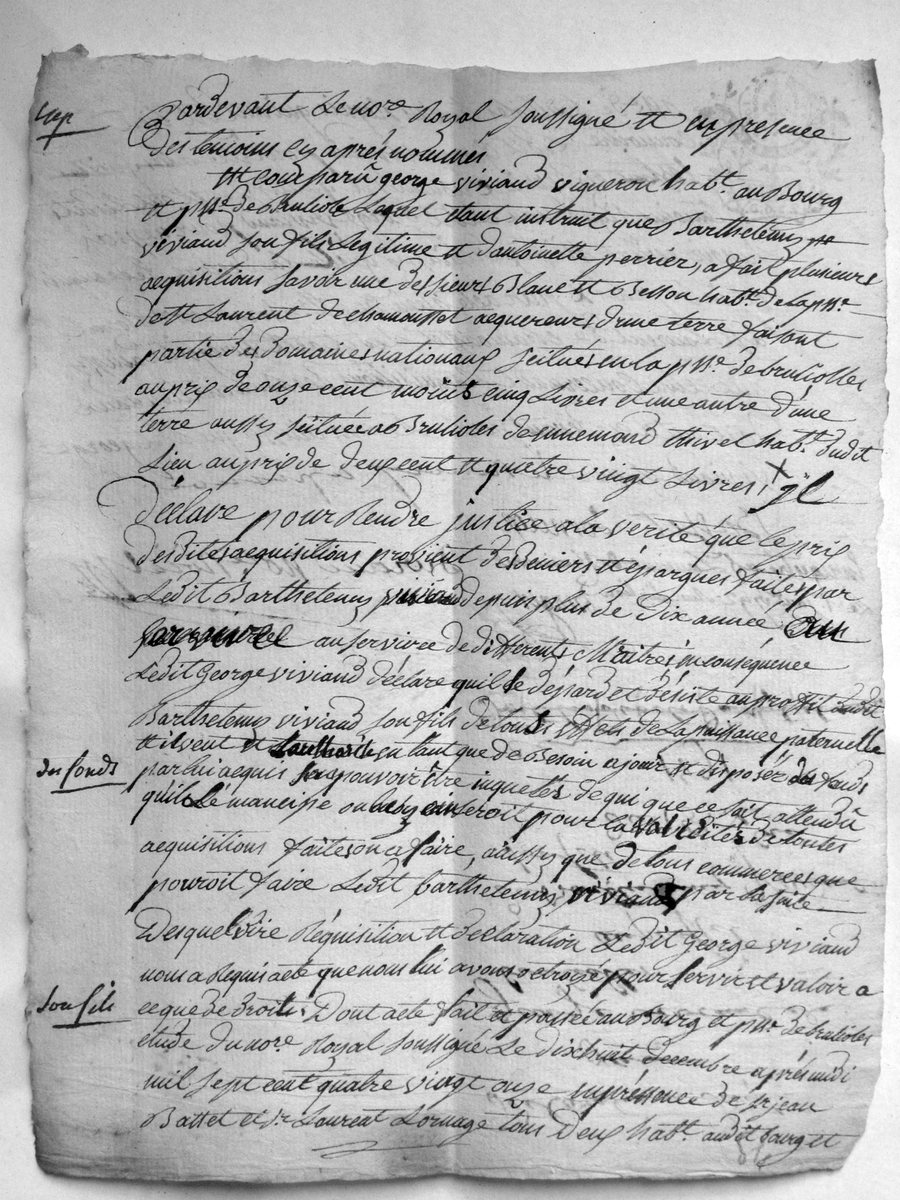 Pardevant Le nore Royal soussigné et en presence
des temoins cy après nommés
est comparu george viviand vigneron habt. au Bourg
et psse. de Brulioles Lequel etant instruit que Barthelemy
viviand son fils Legitime et d'antoinette perrier, a fait plusieurs
acquisitions savoir une des sieurs Blanc et Besson habt. de la psse.
de St Laurent de chamousset acquereurs d'une terre faisant
partie des Domaines nationaux scitués en la psse. de bruliolles
au prix de onze cent moins cinq Livres et une autre d'une
terre aussy scituée a Brulioles de ennemond thivel habt. dudit
Lieu au prix de deux cent et quatre vingt Livres, + il
Déclare pour Rendre justice a la verité que le prix
desdites acquisitions provient des deniers et épargnes faites par
Ledit Barthelemy viviand depuis plus de dix année
au service de differents Maitres en conséquence
Ledit George viviand déclare qu'il se dépard et désiste au proffit dudit
Barthelemy viviand son fils de tous effets de La puissance paternelle
et il veut et en tant que de besoin a jouir et disposer des fonds
des fonds
par lui acquis sans pouvoir être inquetté de qui que ce soit attendu
qu'il L'émancipe ou pour la validité de toutes
acquisitions faites ou a faire, aussy que de tous commerces que
pouroit faire Ledit barthelemy viviand par la suite
Desquelles dire Réquisition et declaration Ledit George viviand
nous a Requis acte que nous lui avons octroyé pour servir et valoir a
son fils
ce que de droit. Dont acte fait et passé au Bourg et psse. de brulioles
etude du nore. Royal soussigné Le dix huit Decembre après midi
mil sept cent quatre vingt onze en présence de sr jean
Battet et sr. Laurent Lornage tous deux habt. audit bourg et